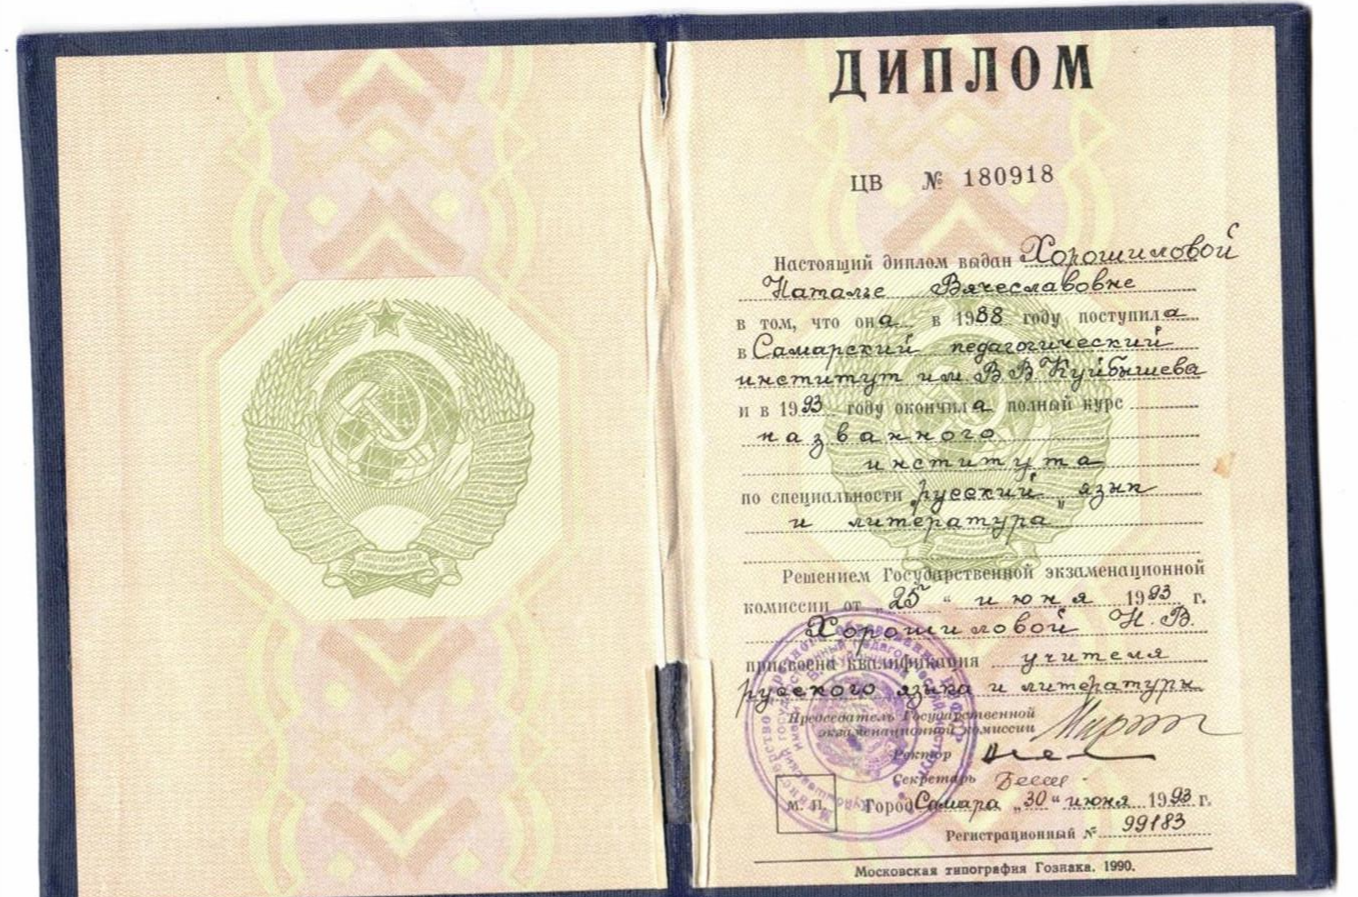 ДИПЛОМ
ЦВ № 180918
Настоящий диплом выдан Хорошиловой
Наталье Вячеславовне
в том, что она в 1988 году поступила
в Самарский педагогический
институт им. В.В. Куйбышева
и в 1993 году окончила полный курс
названного
института
по специальности „русский язык
и литература"
Решением Государственной экзаменационной
комиссии от „25" июня 1993 г.
Хорошиловой Н.В.
присвоена квалификация учителя
русского языка и литературы
Председатель Государственной
экзаменационной комиссии
Ректор
Секретарь
М. П. Город Самара „30" июня 1993 г.
Регистрационный № 99183
Московская типография Гознака. 1990.